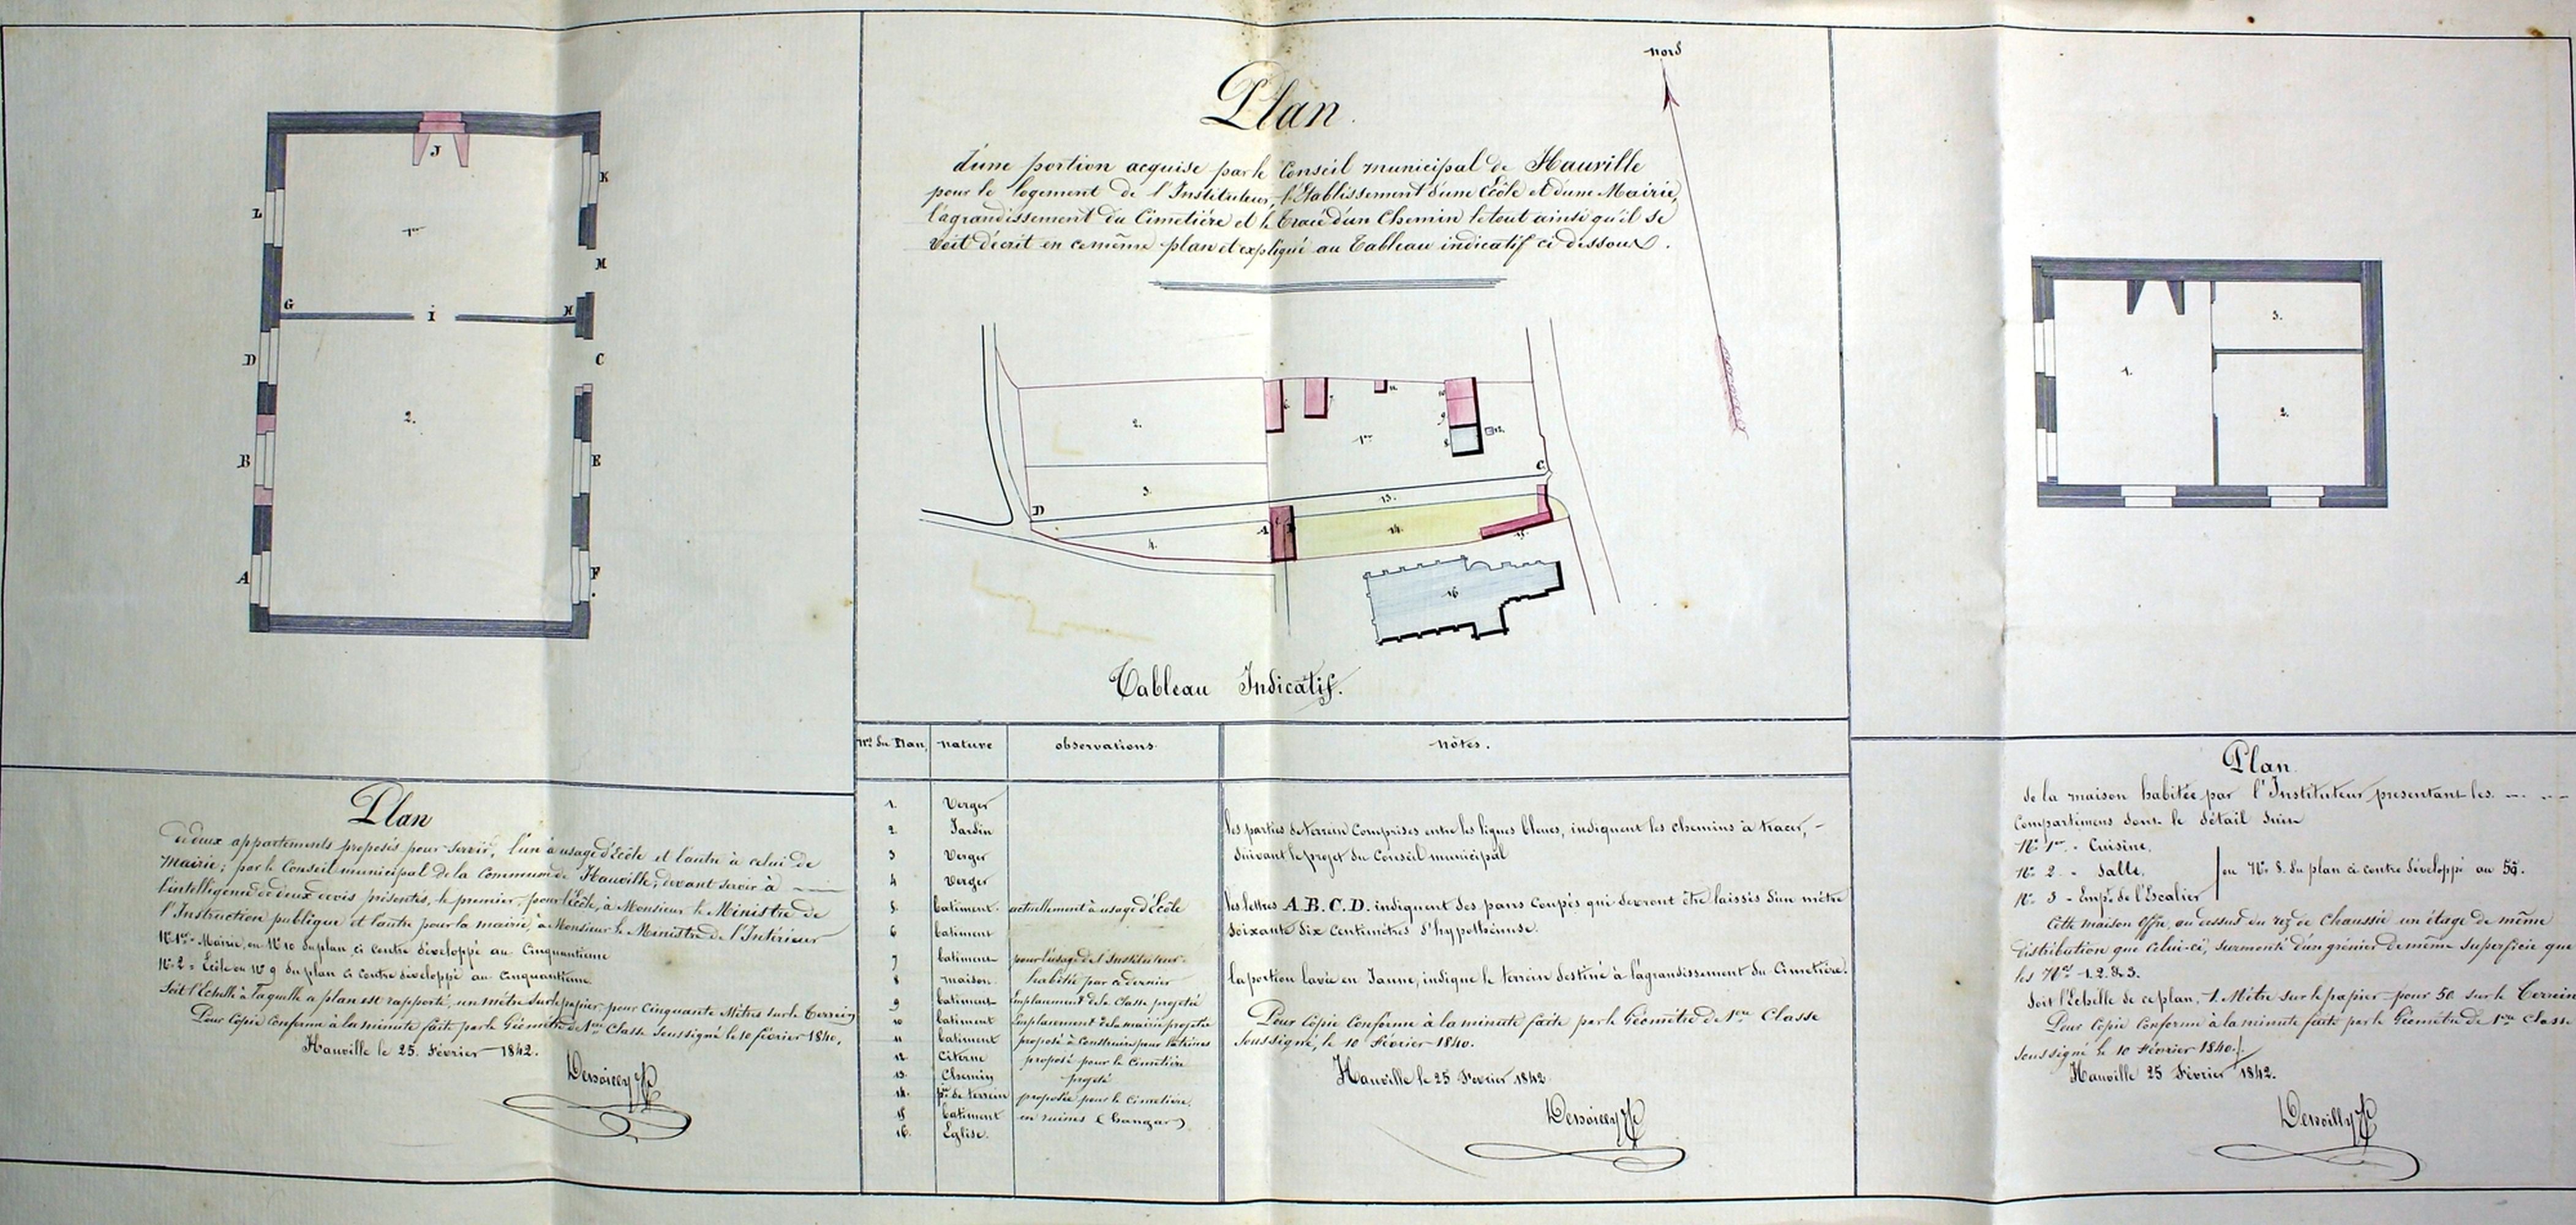 nord
Plan.
d'une portion acquise par le Conseil municipal de Hauville
pour le logement de l'Instituteur, l'Etablissement d'une École et d'une Mairie,
l'agrandissement du Cimetière et le tracé d'un Chemin le tout ainsi qu'il se
voit décrit en ce même plan et expliqué au Tableau indicatif ci dessous.
J
K
L
1er
M
G
i
H
D
C
2.
B
E
A
F
2.
6.
7
11.
10
9
8
12.
1er
3.
C.
D
13.
4.
A
B
14.
15.
16
1.
3.
2.
Tableau Indicatif.
Nos du Plan, nature observations nôtes.
1. Verger
2 Jardin
3 Verger
4 Verger
5. batiment. actuellement à usage d'École
6 batiment
7 batiment pour l'usage de l'Instituteur.
8 maison. habitée par ce dernier
9 batiment Emplacement de la Classe projetée
10 batiment Emplacement de la mairie projetée
11 batiment proposé à Construire pour latrines
12. Citerne proposé pour le cimetière
13. Chemin projeté
14. pie de terrein proposée pour le Cimetière.
15 batiment en ruines (hangar)
16. Église.
les parties de terrein Comprises entre les lignes bleues, indiquent les chemins à tracer, -
suivant le projet du Conseil municipal
les lettres A.B.C.D. indiquent des pans Coupés qui devront être laissés d'un mètre
soixante dix Centimètres d'hypothénuse.
la portion lavée en Jaune, indique le terrein destiné à l'agrandissement du Cimetière.
Pour Copie Conforme à la minute faite par le Géomètre de 1ère Classe
soussigné, le 10 Février 1840.
Hauville le 25 Février 1842
Plan
de deux appartements proposés pour servir, l'un à usage d'École et l'autre à celui de
Mairie; par le Conseil municipal de la Commune de Hauville, devant servir à
l'intelligence de deux devis présentés, le premier, pour l'École, à Monsieur le Ministre de
l'Instruction publique et l'autre pour la mairie, à Monsieur le Ministre de l'Intérieur
No 1er = Mairie, ou No 10 du plan ci contre développé au Cinquantième
No 2 = École ou No 9 du plan ci contre développé au Cinquantième
Soit l'Echelle à laquelle ce plan est rapporté un mètre sur le papier pour Cinquante Mètres sur le Terrein
Pour Copie Conforme à la minute faite par le Géomètre de 1ère Classe Soussigné le 10 février 1840,
Hauville le 25. Février 1842.
Plan.
de la maison habitée par l'Instituteur présentant les
Compartimens dont le détail suit
No 1er - Cuisine,
No 2 - Salle,
No 3 - Empt de l'Escalier
ou No 8. du plan ci contre développé au 50.
Cette maison offre, au dessus du rez de Chaussée un étage de même
distribution que Celui-ci, surmonté d'un grénier de même superficie que
les Nos 1. 2. & 3.
Soit l'Echelle de ce plan, 1. Mètre sur le papier pour 50 sur le Terrein
Pour Copie Conforme à la minute faite par le Géomètre de 1ère Classe
soussigné le 10 Février 1840.
Hauville 25 Février 1842.